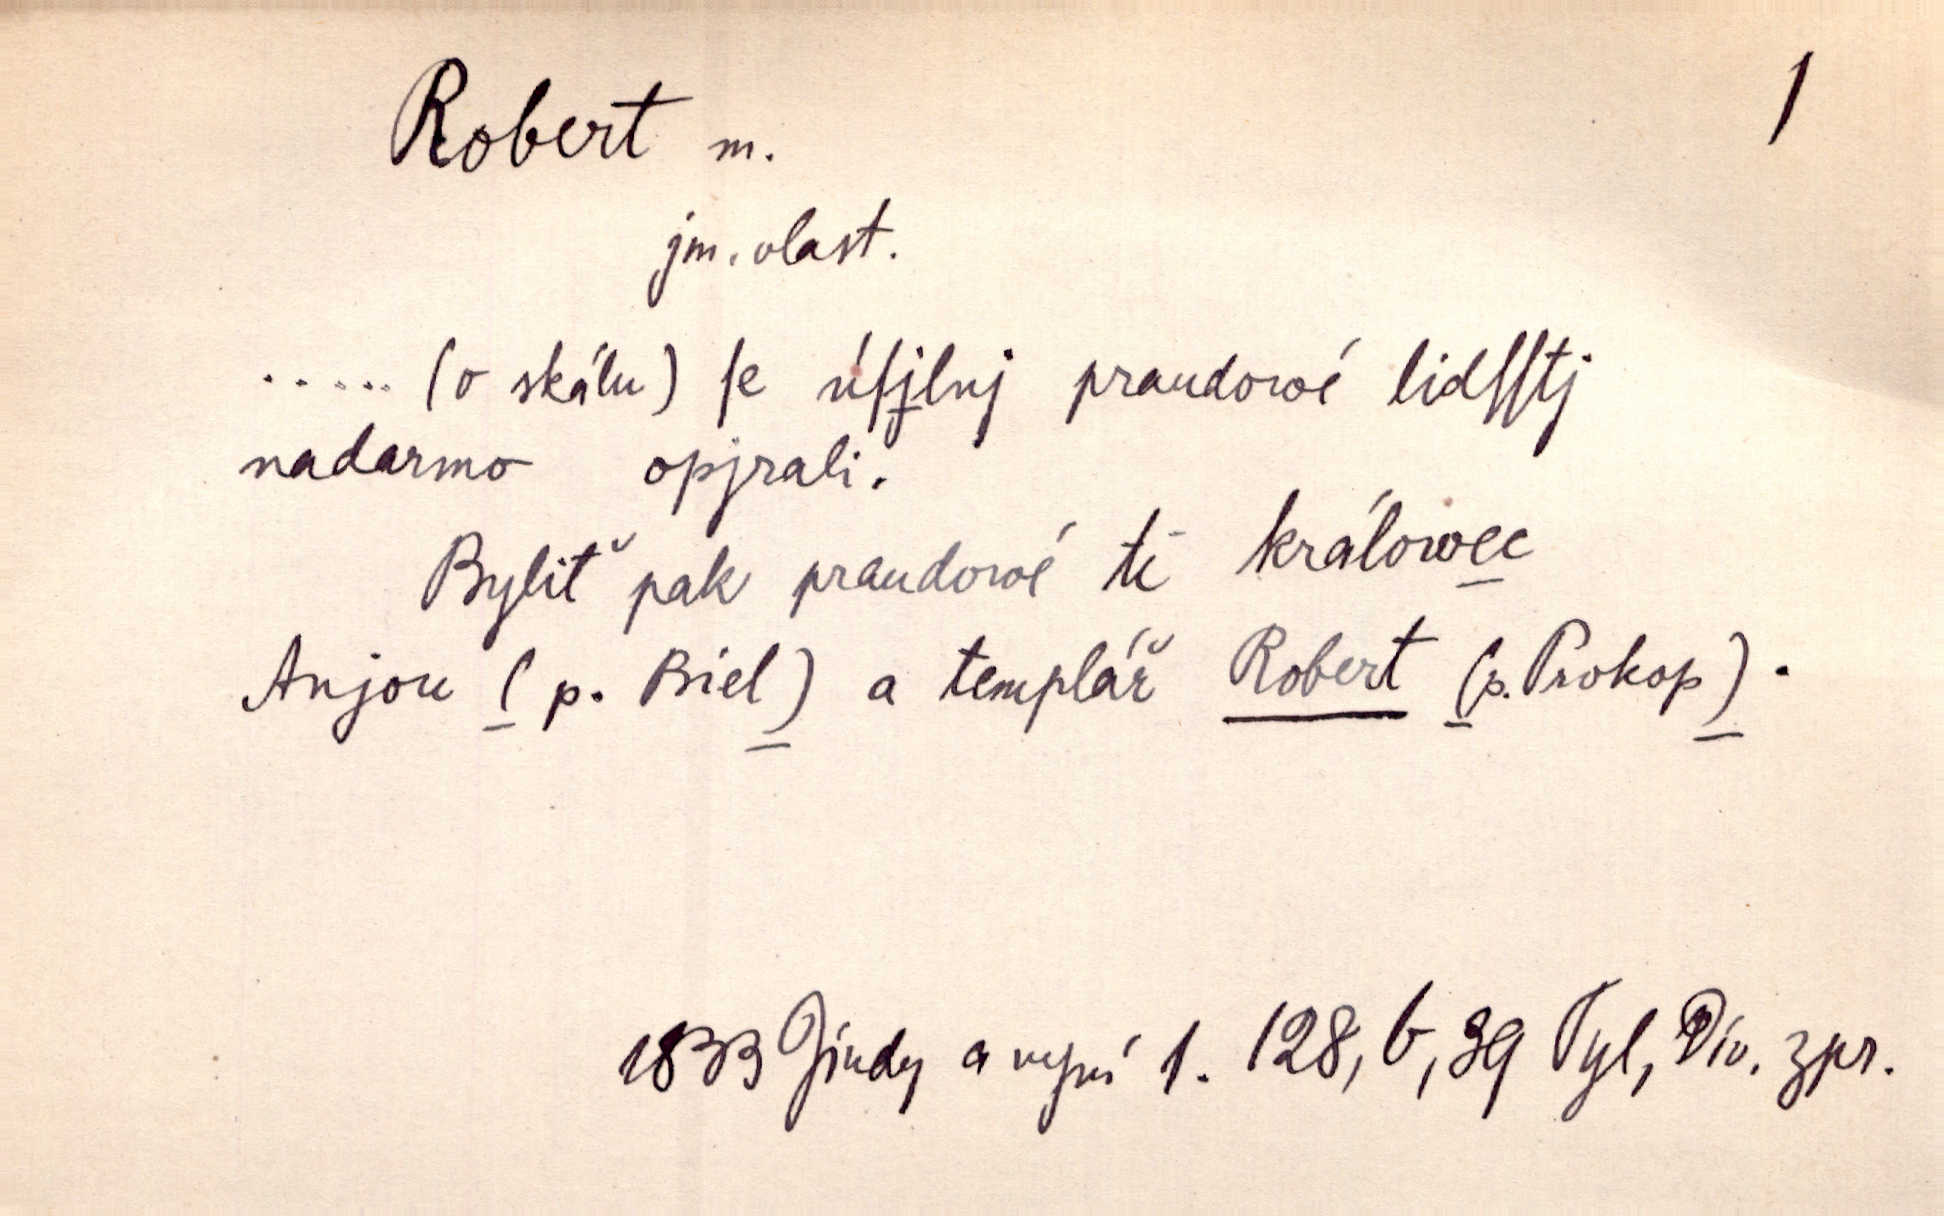 Robert m.
1
jm. vlast.
..... (o skálu) ſe úſjlnj praudowé lidſſtj
nadarmo opjrali.
Byliť pak praudowé ti králowec
Anjou (p. Biel) a templář Robert (p. Prokop).
1833 Jindy a nyní 1. 128, b, 39 Tyl, Div. zpr.